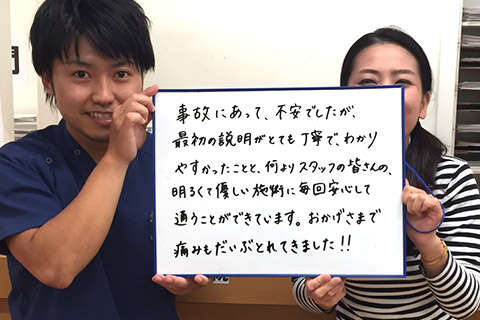 事故にあって、不安でしたが、
最初の説明がとても丁寧で、わかり
やすかったことと、何よりスタッフの皆さんの、
明るくて優しい施術に毎回安心して
通うことができています。おかげさまで
痛みもだいぶとれてきました!!
院